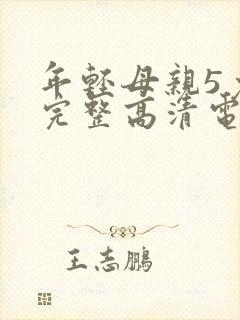 年輕母親5
完整高清電
王志鵬